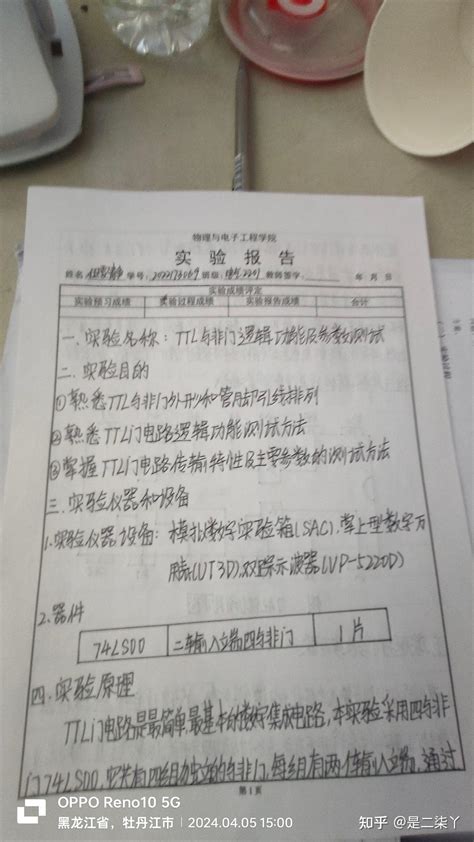 物理与电子工程学院
实验报告
姓名 学号: 班级: 教师签字: 年 月 日
实验成绩评定
实验预习成绩 实验过程成绩 实验报告成绩 合计
一.实验名称: TTL与非门逻辑功能及参数测试
二.实验目的
①熟悉TTL与非门外形和管脚引线排列
②熟悉TTL门电路逻辑功能测试方法
③掌握TTL门电路传输特性及主要参数的测试方法
三.实验仪器和设备
1.实验仪器设备: 模拟数字实验箱(SAC),掌上型数字万
用表(UT3D),双踪示波器(VP-5220D)
2.器件
74LS00 二输入端四与非门 1片
四.实验原理
TTL门电路是最简单,最基本的数字集成电路,本实验采用四与非
门74LS00,共有四组独立的与非门,每组有两个输入端,通过
第1页
OPPO Reno10 5G
黑龙江省，牡丹江市 | 2024.04.05 15:00
知乎 @是二柒丫